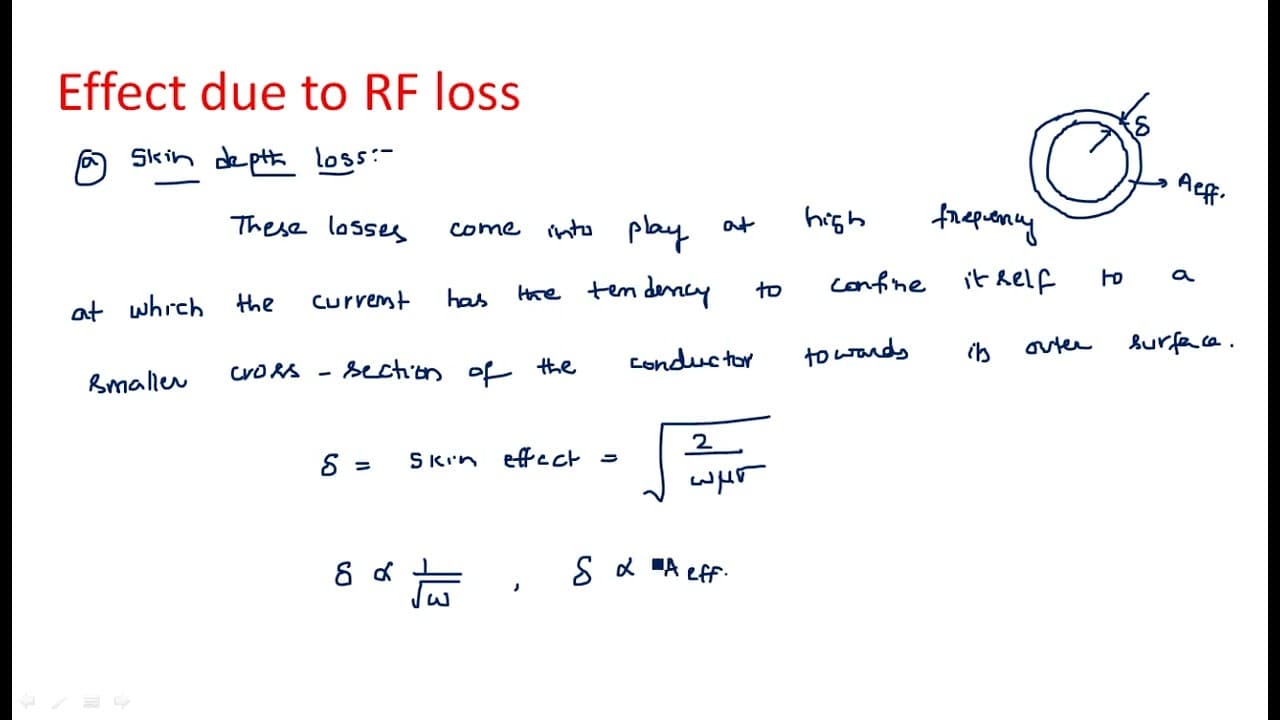 Effect due to RF loss
(a) Skin depth loss:-
δ
Aeff.
These losses come into play at high frequency
at which the current has the tendency to confine itself to a
smaller cross-section of the conductor towards its outer surface.
δ = Skin effect = √(2/ωμσ)
δ ∝ 1/√ω , δ ∝ Aeff.